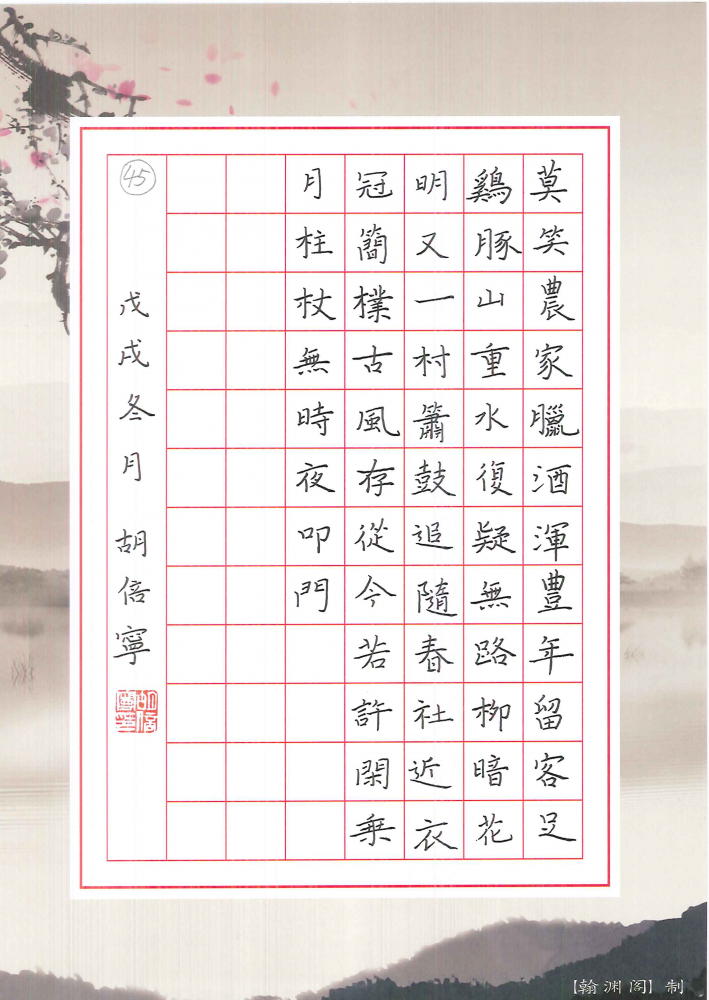 莫笑農家臘酒渾豊年留客足
鷄豚山重水復疑無路柳暗花
明又一村簫鼓追隨春社近衣
冠簡樸古風存從今若許閑乗
月柱杖無時夜叩門
戊戌冬月 胡倍寧
45
【翰渊阁】制